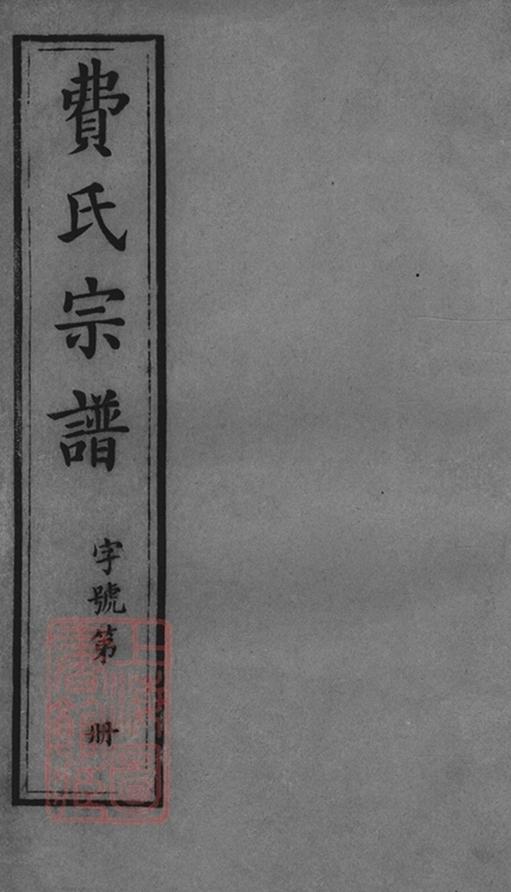 費氏宗譜
字號第 冊